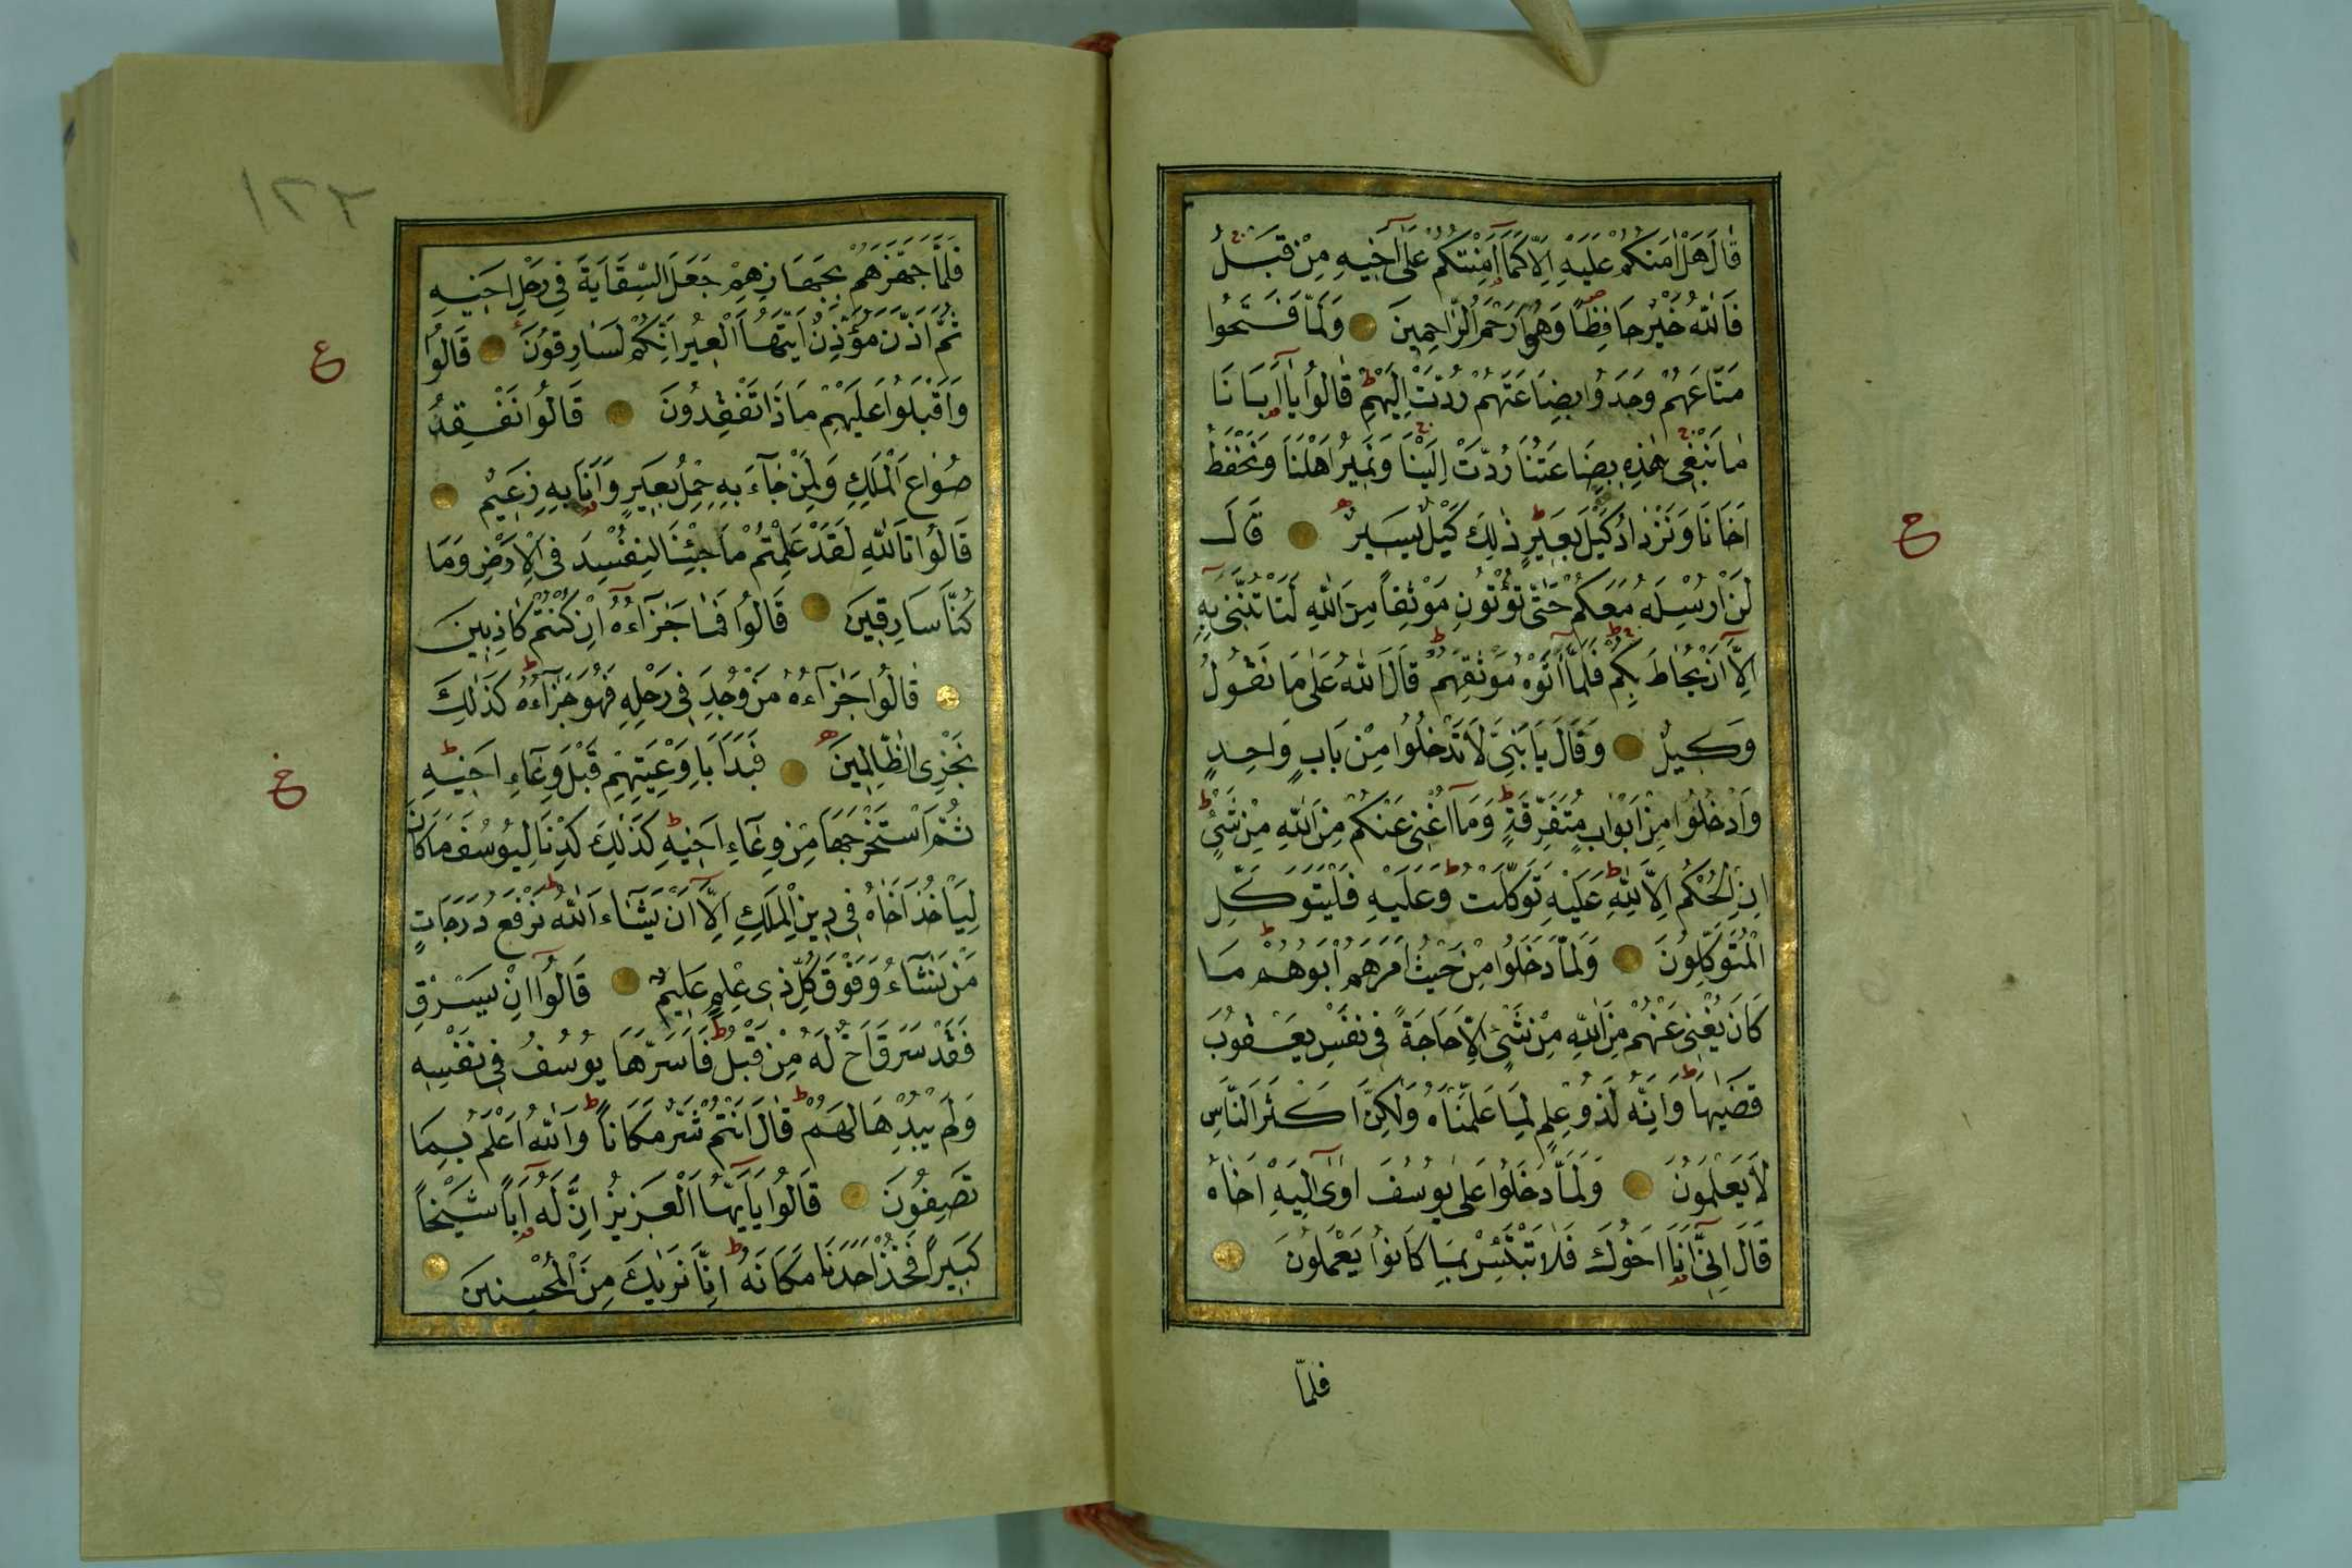 قَالَ هَلْ اٰمَنُكُمْ عَلَيْهِ اِلَّا كَمَٓا اَمِنْتُكُمْ عَلٰٓى اَخِيهِ مِنْ قَبْلُ
فَاللّٰهُ خَيْرٌ حَافِظًا وَهُوَ اَرْحَمُ الرَّاحِمِينَ وَلَمَّا فَتَحُوا
مَتَاعَهُمْ وَجَدُوا بِضَاعَتَهُمْ رُدَّتْ اِلَيْهِمْ قَالُوا يَٓا اَبَانَا
مَا نَبْغِى هٰذِهِ بِضَاعَتُنَا رُدَّتْ اِلَيْنَا وَنَمِيرُ اَهْلَنَا وَنَحْفَظُ
اَخَانَا وَنَزْدَادُ كَيْلَ بَعِيرٍ ذٰلِكَ كَيْلٌ يَسِيرٌ قَالَ
لَنْ اُرْسِلَهُ مَعَكُمْ حَتّٰى تُؤْتُونِ مَوْثِقًا مِنَ اللّٰهِ لَتَاْتُنَّنِى بِهِ
اِلَّٓا اَنْ يُحَاطَ بِكُمْ فَلَمَّٓا اٰتَوْهُ مَوْثِقَهُمْ قَالَ اللّٰهُ عَلٰى مَا نَقُولُ
وَكِيلٌ وَقَالَ يَا بَنِىَّ لَا تَدْخُلُوا مِنْ بَابٍ وَاحِدٍ
وَادْخُلُوا مِنْ اَبْوَابٍ مُتَفَرِّقَةٍ وَمَٓا اُغْنِى عَنْكُمْ مِنَ اللّٰهِ مِنْ شَىْءٍ
اِنِ الْحُكْمُ اِلَّا لِلّٰهِ عَلَيْهِ تَوَكَّلْتُ وَعَلَيْهِ فَلْيَتَوَكَّلِ
الْمُتَوَكِّلُونَ وَلَمَّا دَخَلُوا مِنْ حَيْثُ اَمَرَهُمْ اَبُوهُمْ مَا
كَانَ يُغْنِى عَنْهُمْ مِنَ اللّٰهِ مِنْ شَىْءٍ اِلَّا حَاجَةً فِى نَفْسِ يَعْقُوبَ
قَضٰيهَا وَاِنَّهُ لَذُو عِلْمٍ لِمَا عَلَّمْنَاهُ وَلٰكِنَّ اَكْثَرَ النَّاسِ
لَا يَعْلَمُونَ وَلَمَّا دَخَلُوا عَلٰى يُوسُفَ اٰوٰٓى اِلَيْهِ اَخَاهُ
قَالَ اِنِّٓى اَنَا اَخُوكَ فَلَا تَبْتَئِسْ بِمَا كَانُوا يَعْمَلُونَ
فلمّا
ح
١٢٢
فَلَمَّا جَهَّزَهُمْ بِجَهَازِهِمْ جَعَلَ السِّقَايَةَ فِى رَحْلِ اَخِيهِ
ثُمَّ اَذَّنَ مُؤَذِّنٌ اَيَّتُهَا الْعِيرُ اِنَّكُمْ لَسَارِقُونَ قَالُوا
وَاَقْبَلُوا عَلَيْهِمْ مَاذَا تَفْقِدُونَ قَالُوا نَفْقِدُ
صُوَاعَ الْمَلِكِ وَلِمَنْ جَٓاءَ بِهِ حِمْلُ بَعِيرٍ وَاَنَا بِهِ زَعِيمٌ
قَالُوا تَاللّٰهِ لَقَدْ عَلِمْتُمْ مَا جِئْنَا لِنُفْسِدَ فِى الْاَرْضِ وَمَا
كُنَّا سَارِقِينَ قَالُوا فَمَا جَزَٓاءُهُ اِنْ كُنْتُمْ كَاذِبِينَ
قَالُوا جَزَٓاءُهُ مَنْ وُجِدَ فِى رَحْلِهِ فَهُوَ جَزَٓاءُهُ كَذٰلِكَ
نَجْزِى الظَّالِمِينَ فَبَدَاَ بِاَوْعِيَتِهِمْ قَبْلَ وِعَٓاءِ اَخِيهِ
ثُمَّ اسْتَخْرَجَهَا مِنْ وِعَٓاءِ اَخِيهِ كَذٰلِكَ كِدْنَا لِيُوسُفَ مَا كَانَ
لِيَاْخُذَ اَخَاهُ فِى دِينِ الْمَلِكِ اِلَّٓا اَنْ يَشَٓاءَ اللّٰهُ نَرْفَعُ دَرَجَاتٍ
مَنْ نَشَٓاءُ وَفَوْقَ كُلِّ ذِى عِلْمٍ عَلِيمٌ قَالُٓوا اِنْ يَسْرِقْ
فَقَدْ سَرَقَ اَخٌ لَهُ مِنْ قَبْلُ فَاَسَرَّهَا يُوسُفُ فِى نَفْسِهِ
وَلَمْ يُبْدِهَا لَهُمْ قَالَ اَنْتُمْ شَرٌّ مَكَانًا وَاللّٰهُ اَعْلَمُ بِمَا
تَصِفُونَ قَالُوا يَٓا اَيُّهَا الْعَزِيزُ اِنَّ لَهُ اَبًا شَيْخًا
كَبِيرًا فَخُذْ اَحَدَنَا مَكَانَهُ اِنَّا نَرٰيكَ مِنَ الْمُحْسِنِينَ
ع
خ